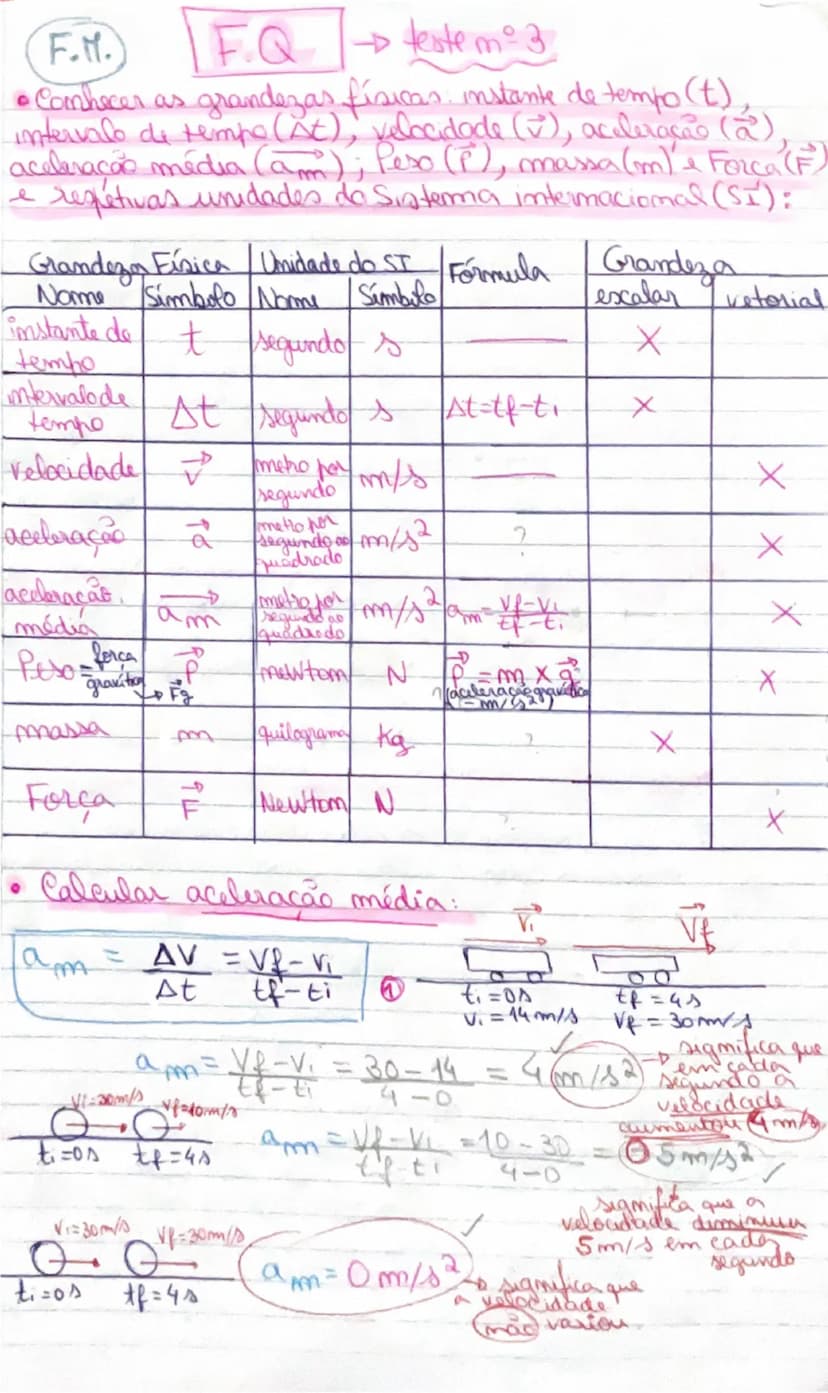 F.M.
F.Q → teste nº 3
• Conhecer as grandezas físicas: instante de tempo (t),
intervalo de tempo (Δt), velocidade (v⃗), aceleração (a⃗),
aceleração média (a⃗m); Peso (P⃗), massa (m) e Força (F⃗)
e respetivas unidades do Sistema internacional (SI):
Grandeza Física Unidade do SI Fórmula Grandeza
Nome Símbolo Nome Símbolo escalar vetorial
instante de
tempo t segundo s — X
intervalo de
tempo Δt segundo s Δt=tf-ti X
velocidade v⃗ metro por
segundo m/s — X
aceleração a⃗ metro por
segundo ao
quadrado m/s² ? X
aceleração
média a⃗m metro por
segundo ao
quadrado m/s² am = vf-vi / tf-ti X
Peso = força
gravítica → F⃗g P⃗ newton N P⃗ = m x g⃗
(aceleração gravítica
= m/s²) X
massa m quilograma kg ? X
Força F⃗ Newton N ? X
• Calcular aceleração média:
am = ΔV / Δt = Vf - Vi / tf - ti
①
v⃗i v⃗f
ti = 0s tf = 4s
Vi = 14 m/s Vf = 30 m/s
am = Vf - Vi / tf - ti = 30 - 14 / 4 - 0 = 4 m/s² ✓
→ significa que
em cada
segundo a
velocidade
aumentou 4 m/s
Vi=30m/s Vf=10m/s
ti=0s tf=4s
am = Vf - Vi / tf - ti = 10 - 30 / 4 - 0 = -5 m/s² ✓
significa que a
velocidade diminuiu
5 m/s em cada
segundo
Vi=30m/s Vf=30m/s
ti=0s tf=4s
am = 0 m/s² ✓
→ significa que
a velocidade
não variou